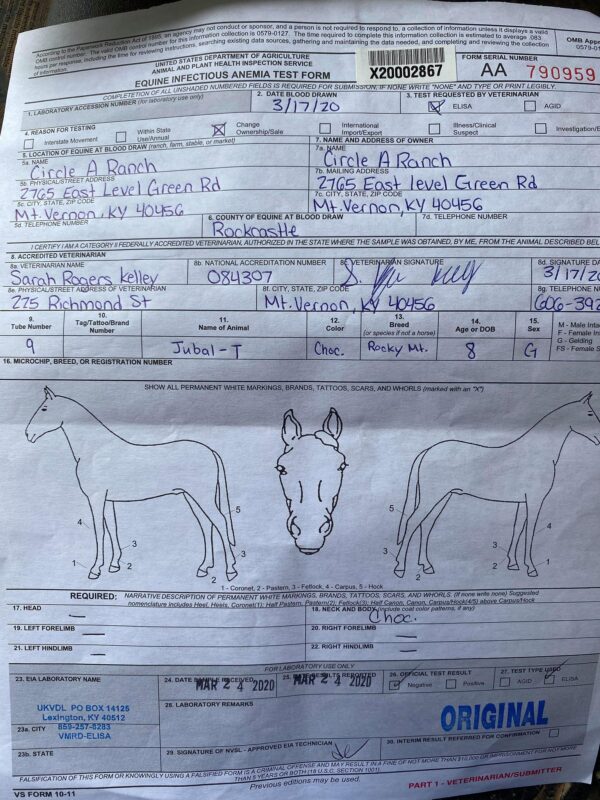 According to the Paperwork Reduction Act of 1995, an agency may not conduct or sponsor, and a person is not required to respond to, a collection of information unless it displays a valid
OMB control number. The valid OMB control number for this information collection is 0579-0127. The time required to complete this information collection is estimated to average .083
hours per response, including the time for reviewing instructions, searching existing data sources, gathering and maintaining the data needed, and completing and reviewing the collection
of information.
OMB Appro
0579-01
UNITED STATES DEPARTMENT OF AGRICULTURE
ANIMAL AND PLANT HEALTH INSPECTION SERVICE
EQUINE INFECTIOUS ANEMIA TEST FORM
X20002867
FORM SERIAL NUMBER
AA 790959
COMPLETION OF ALL UNSHADED NUMBERED FIELDS IS REQUIRED FOR SUBMISSION, IF NONE WRITE "NONE" AND TYPE OR PRINT LEGIBLY.
1. LABORATORY ACCESSION NUMBER (for laboratory use only)
2. DATE BLOOD DRAWN
3/17/20
3. TEST REQUESTED BY VETERINARIAN
ELISA AGID
4. REASON FOR TESTING
Interstate Movement
Within State Use/Annual
Change Ownership/Sale
International Import/Export
Illness/Clinical Suspect
Investigation/E
5. LOCATION OF EQUINE AT BLOOD DRAW (ranch, farm, stable, or market)
7. NAME AND ADDRESS OF OWNER
5a. NAME
Circle A Ranch
7a. NAME
Circle A Ranch
5b. PHYSICAL/STREET ADDRESS
2765 East Level Green Rd
7b. MAILING ADDRESS
2765 East level Green Rd
5c. CITY, STATE, ZIP CODE
Mt. Vernon, KY 40456
7c. CITY, STATE, ZIP CODE
Mt. Vernon, KY 40456
5d. TELEPHONE NUMBER
6. COUNTY OF EQUINE AT BLOOD DRAW
Rockcastle
7d. TELEPHONE NUMBER
I CERTIFY I AM A CATEGORY II FEDERALLY ACCREDITED VETERINARIAN, AUTHORIZED IN THE STATE WHERE THE SAMPLE WAS OBTAINED, BY ME, FROM THE ANIMAL DESCRIBED BEL
8. ACCREDITED VETERINARIAN
8a. VETERINARIAN NAME
Sarah Rogers Kelley
8b. NATIONAL ACCREDITATION NUMBER
084307
8c. VETERINARIAN SIGNATURE
8d. SIGNATURE DA
3/17/20
8e. PHYSICAL/STREET ADDRESS OF VETERINARIAN
225 Richmond St
8f. CITY, STATE, ZIP CODE
Mt. Vernon, KY 40456
8g. TELEPHONE N
(606-392
9. Tube Number
10. Tag/Tattoo/Brand Number
11. Name of Animal
12. Color
13. Breed (or species if not a horse)
14. Age or DOB
15. Sex
M - Male Inta
F - Female In
G - Gelding
FS - Female S
9 Jubal-T Choc. Rocky Mt. 8 G
16. MICROCHIP, BREED, OR REGISTRATION NUMBER
SHOW ALL PERMANENT WHITE MARKINGS, BRANDS, TATTOOS, SCARS, AND WHORLS (marked with an "X")
4 3 1 2 5 4 3 1 2 5
1 - Coronet, 2 - Pastern, 3 - Fetlock, 4 - Carpus, 5 - Hock
REQUIRED: NARRATIVE DESCRIPTION OF PERMANENT WHITE MARKINGS, BRANDS, TATTOOS, SCARS, AND WHORLS. (If none write none) Suggested
nomenclature includes Heel, Heels, Coronet(1); Half Pastern, Pastern(2); Fetlock(3); Half Canon, Canon, Carpus/Hock(4/5) above Carpus/Hock
17. HEAD
18. NECK AND BODY (include coat color patterns, if any)
Choc.
19. LEFT FORELIMB
20. RIGHT FORELIMB
21. LEFT HINDLIMB
22. RIGHT HINDLIMB
FOR LABORATORY USE ONLY
23. EIA LABORATORY NAME
UKVDL PO BOX 14125
Lexington, KY 40512
859-257-8283
VMRD-ELISA
23a. CITY
23b. STATE
24. DATE SAMPLE RECEIVED
MAR 24 2020
25. DATE RESULTS REPORTED
MAR 24 2020
26. OFFICIAL TEST RESULT
Negative Positive
27. TEST TYPE USED
AGID ELISA
28. LABORATORY REMARKS
ORIGINAL
29. SIGNATURE OF NVSL - APPROVED EIA TECHNICIAN
30. INTERIM RESULT REFERRED FOR CONFIRMATION
FALSIFICATION OF THIS FORM OR KNOWINGLY USING A FALSIFIED FORM IS A CRIMINAL OFFENSE AND MAY RESULT IN A FINE OF NOT MORE THAN $10,000 OR IMPRISONMENT FOR NOT MORE
THAN 5 YEARS OR BOTH (18 U.S.C. SECTION 1001).
VS FORM 10-11
Previous editions may be used.
PART 1 - VETERINARIAN/SUBMITTER